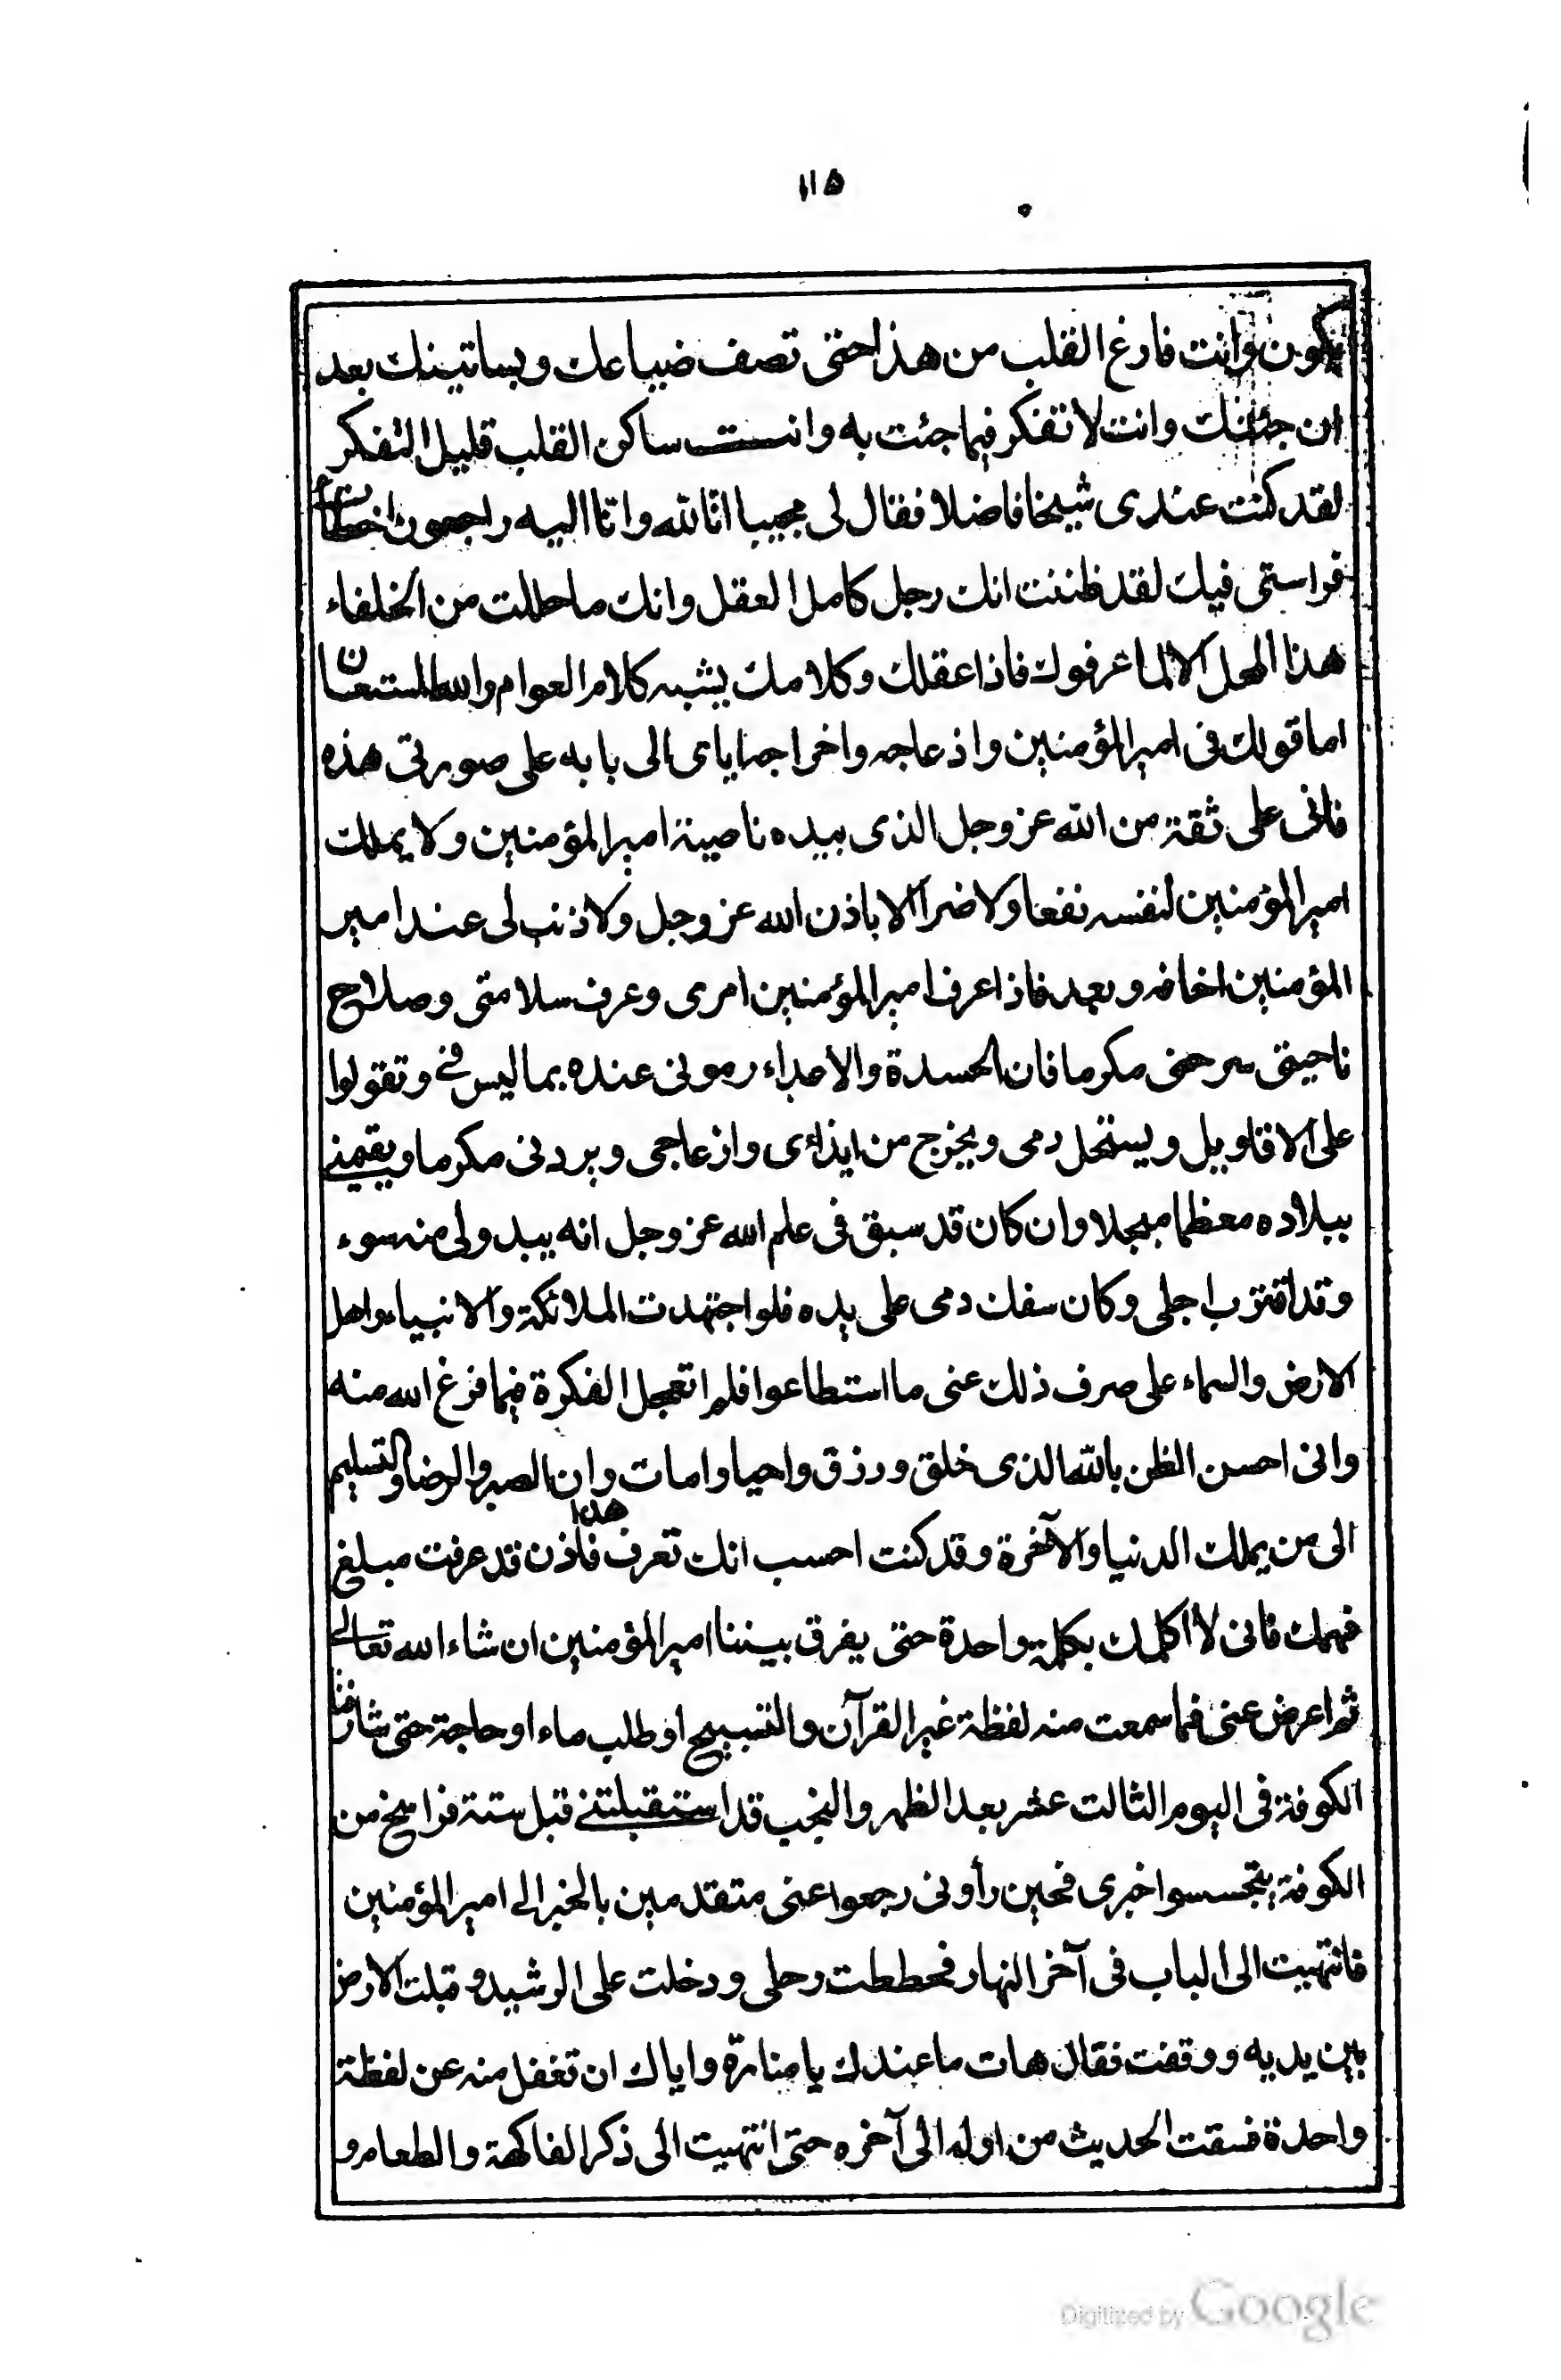 ١١٥
يكون وانت فارغ القلب من هذا حتى تصف ضياعك وبساتينك بعد
ان جئتك وانت لا تفكر فيما جئت به وانت ساكن القلب قليل التفكر
لقد كنت عندى شيخا فاضلا فقال لى مجيبا انّا لله وانا اليه راجعون اخطأت
فراستى فيك لقد ظننت انك رجل كامل العقل وانك ما حللت من الخلفاء
هذا المحل الا لما عرفوك فاذا عقلك وكلامك يشبه كلام العوام والله المستعان
اما قولك فى امير المؤمنين واذعاجه واخراجه اياى الى بابه على صورتى هذه
فانى على ثقة من الله عز وجل الذى بيده ناصية امير المؤمنين ولا يملك
امير المؤمنين لنفسه نفعا ولا ضرا الا باذن الله عز وجل ولا ذنب لى عند امير
المؤمنين اخافه وبعد فاذا عرف امير المؤمنين امرى وعرف سلامتى وصلاح
ناحيتى سرحنى مكرما فان الحسدة والاعداء رمونى عنده بما ليس فى وتقولوا
على الاقاويل ويستحل دمى ويخرج من ايذائى وازعاجى ويردنى مكرما ويقيمنى
ببلاده معظما مبجلا وان كان قد سبق فى علم الله عز وجل انه يبدو لى منه سوء
وقد اقترب اجلى وكان سفك دمى على يده فلو اجتهدت الملائكة والانبياء واهل
الارض والسماء على صرف ذلك عنى ما استطاعوا فلم اتعجل الفكرة فيما فرغ الله منه
وانى احسن الظن بالله الذى خلق ورزق واحيا وامات وان الصبر والرضا والتسليم
الى من يملك الدنيا والآخرة وقد كنت احسب انك تعرف هذا فاذن قد عرفت مبلغ
فهمك فانى لا اكلمك بكلمة واحدة حتى يفرق بيننا امير المؤمنين ان شاء الله تعالى
ثم اعرض عنى فما سمعت منه لفظة غير القرآن والتسبيح او طلب ماء او حاجة حتى شارفنا
الكوفة فى اليوم الثالث عشر بعد الظهر والنجب قد استقبلتنى قبل ستة فراسخ من
الكوفة يتجسسوا خبرى فحين رأونى رجعوا عنى متقدمين بالخبر الى امير المؤمنين
فانتهيت الى الباب فى آخر النهار فحططت رحلى ودخلت على الرشيد وقبلت الارض
بين يديه ووقفت فقال هات ما عندك يا منارة واياك ان تغفل منه عن لفظة
واحدة فسقت الحديث من اوله الى آخره حتى انتهيت الى ذكر الفاكهة والطعام و
Digitized by Google